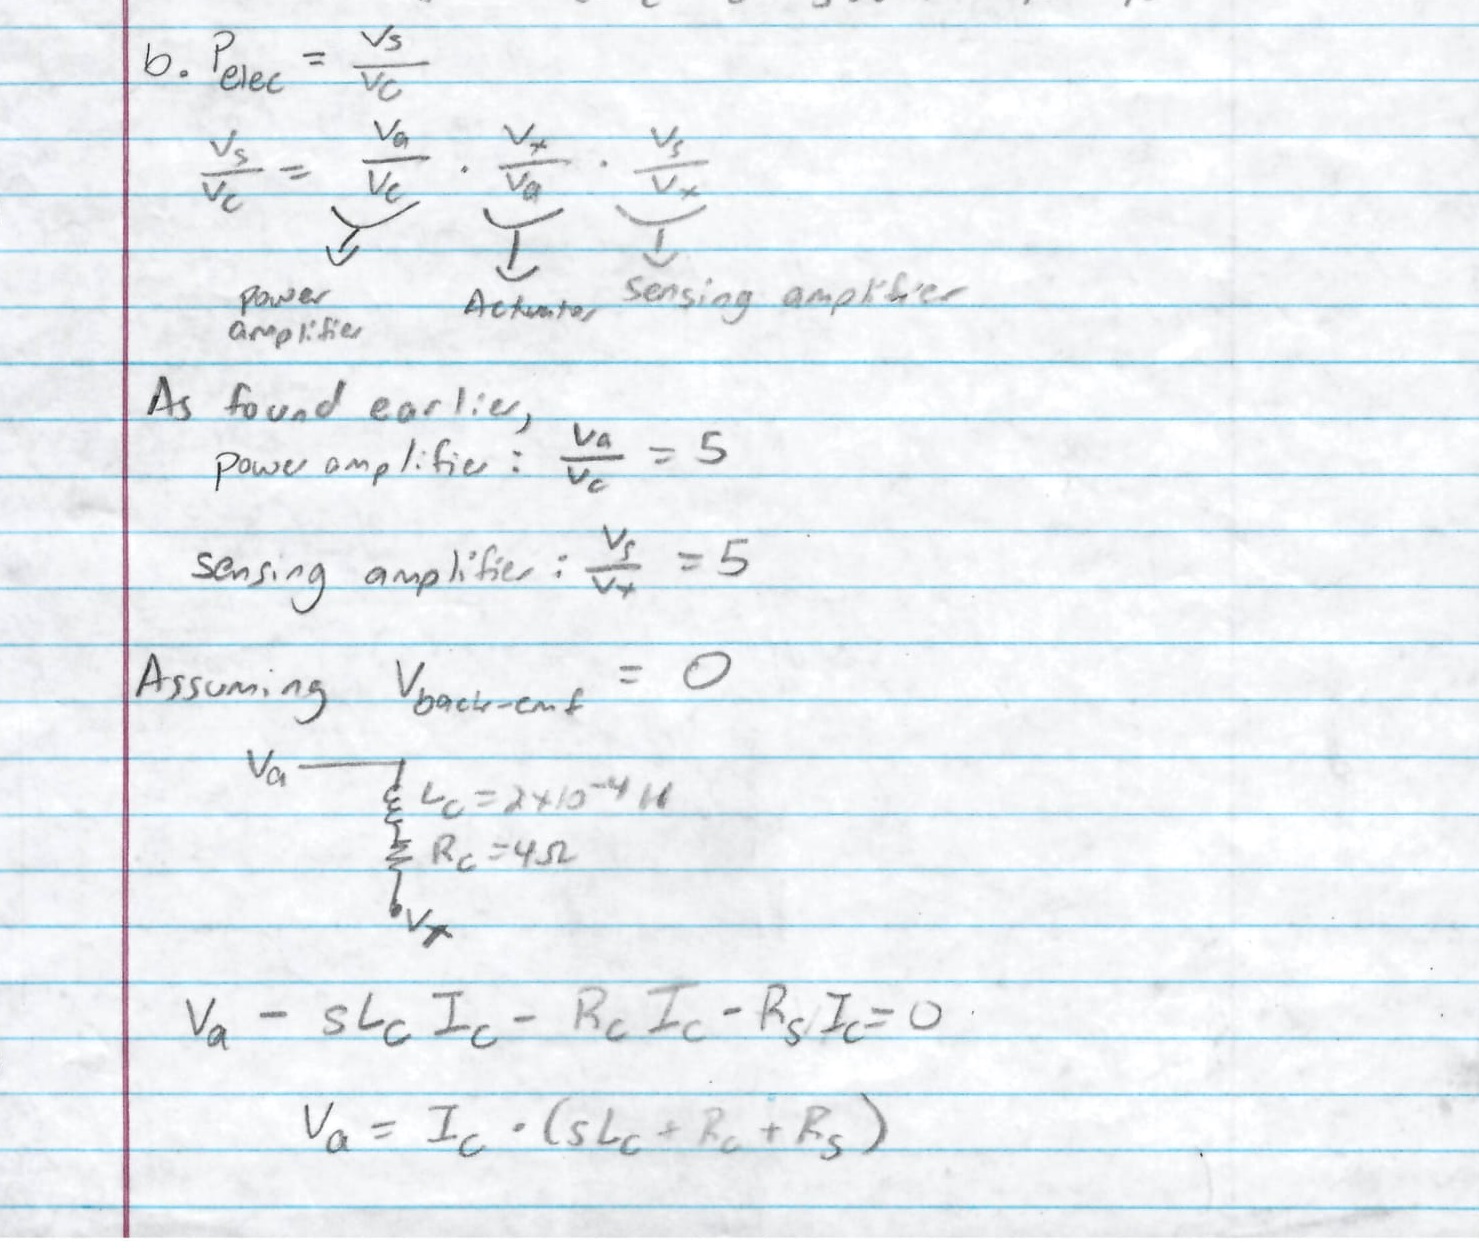 b. Pelec = Vs/Vc
Vs/Vc = Va/Vc · Vx/Va · Vs/Vx
power amplifier Actuator sensing amplifier
As found earlier,
power amplifier : Va/Vc = 5
sensing amplifier : Vs/Vx = 5
Assuming Vback-emf = 0
Va
Lc = 2x10⁻⁴ H
Rc = 4Ω
Vx
Va - sLc Ic - Rc Ic - Rs Ic = 0
Va = Ic · (sLc + Rc + Rs)